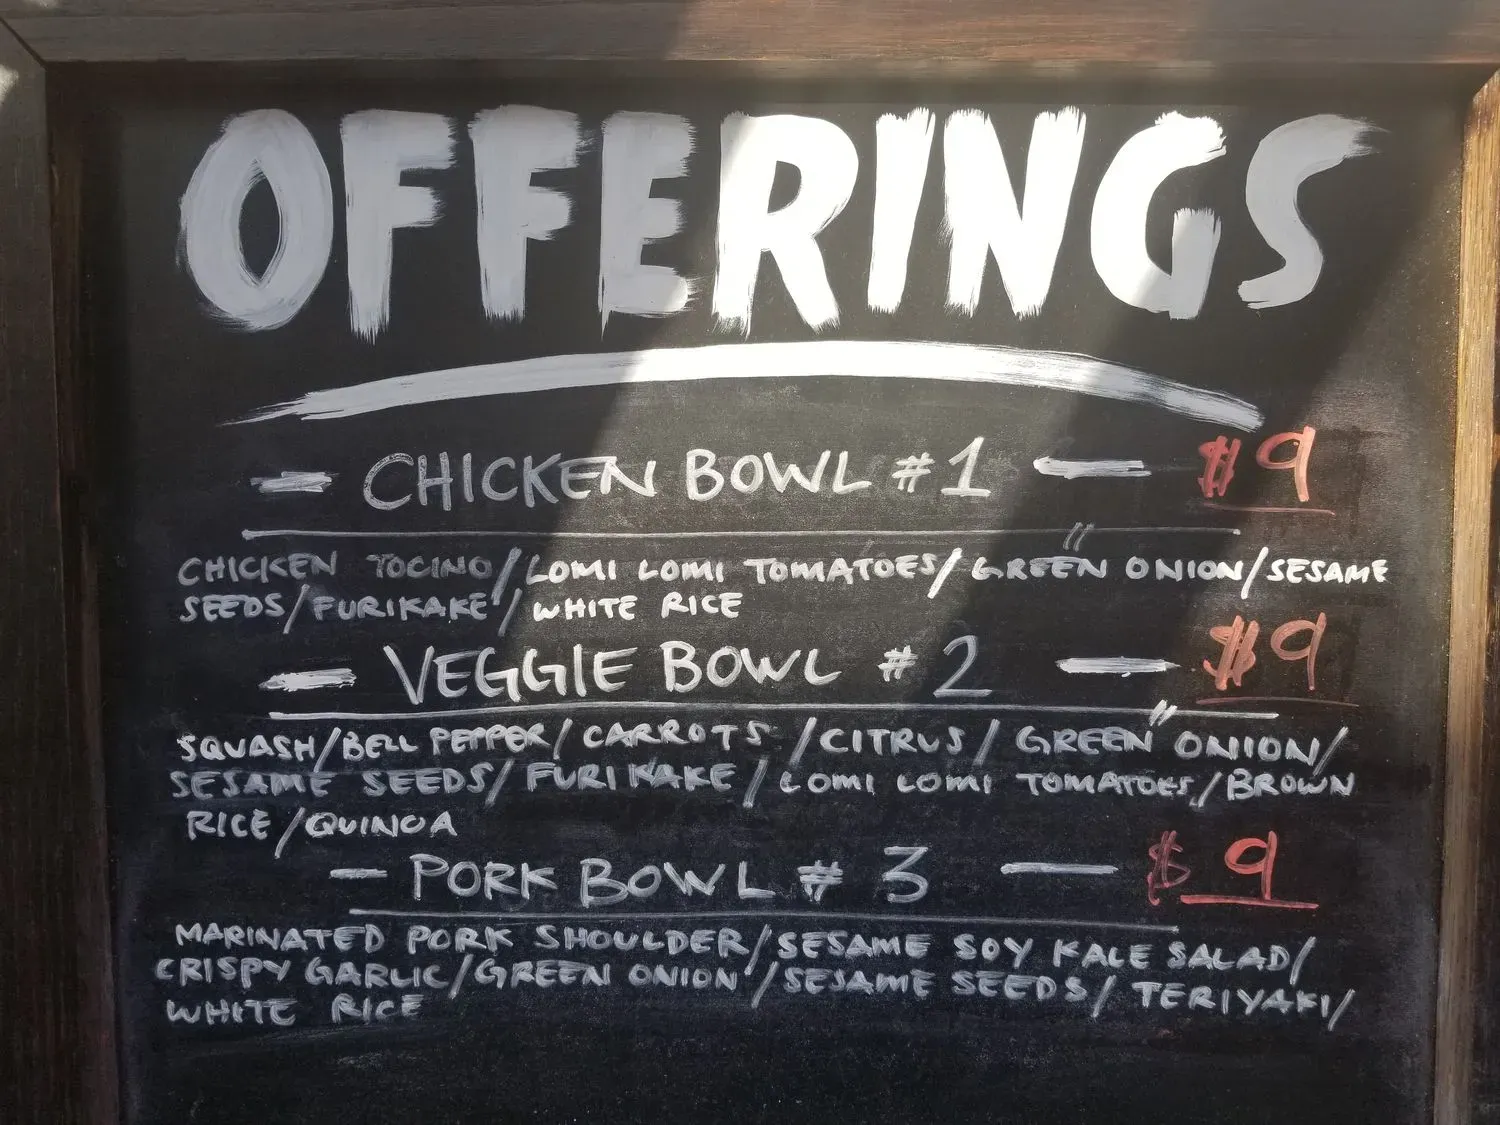 OFFERINGS
- CHICKEN BOWL #1 - $9
CHICKEN TOCINO/LOMI LOMI TOMATOES/GREEN ONION/SESAME
SEEDS/FURIKAKE/WHITE RICE
- VEGGIE BOWL #2 - $9
SQUASH/BELL PEPPER/CARROTS/CITRUS/GREEN ONION/
SESAME SEEDS/FURIKAKE/LOMI LOMI TOMATOES/BROWN
RICE/QUINOA
- PORK BOWL #3 - $9
MARINATED PORK SHOULDER/SESAME SOY KALE SALAD/
CRISPY GARLIC/GREEN ONION/SESAME SEEDS/TERIYAKI/
WHITE RICE